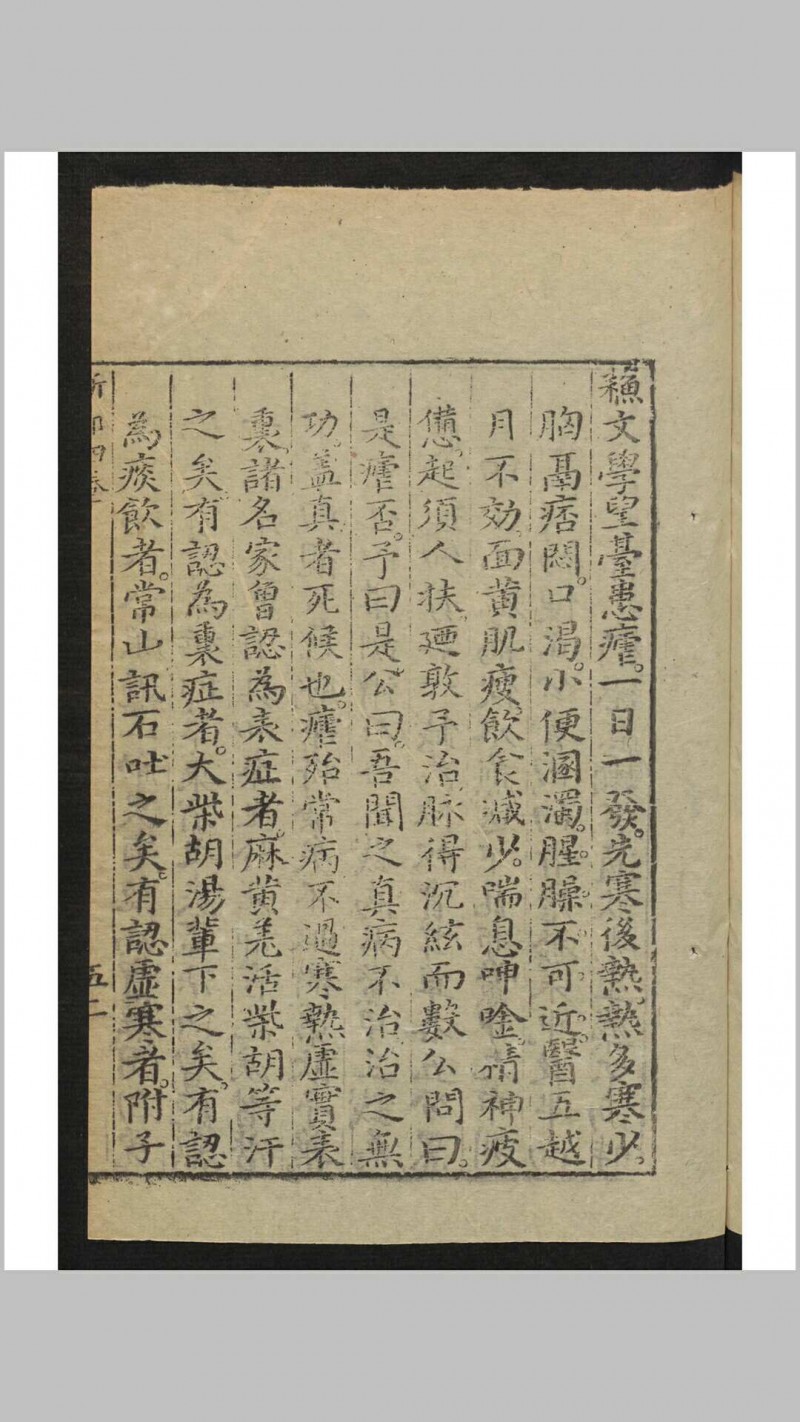 穌文學望臺患瘧。一日一發。先寒後熱。熱多寒少。
胸鬲痞悶。口渴。小便溷濁。腥臊不可近。醫五越
月不効。面黃肌瘦。飲食減少。喘息呻唫。精神疲
憊。起須人扶。廼敦予治。脉得沉絃而數。公問曰。
是瘧否。予曰是。公曰。吾聞之真病不治。治之無
功。蓋真者死候也。瘧殆常病。不過寒熱虛實表
裏。諸名家曾認為表症者。麻黃羌活柴胡等汗
之矣。有認為裏症者。大柴胡湯輩下之矣。有認
為痰飲者。常山訊石吐之矣。有認虛寒者。附子
五二